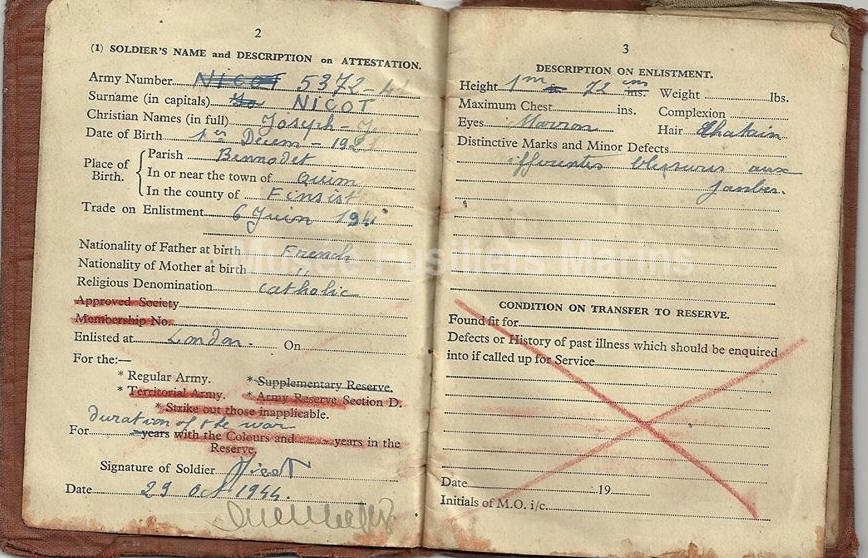 2
(1) SOLDIER'S NAME and DESCRIPTION on ATTESTATION.
Army Number NICOT 5372-4
Surname (in capitals) NICOT
Christian Names (in full) Joseph - J
Date of Birth 1er Décem - 192
Place of Birth.
Parish Bennodet
In or near the town of Quim
In the county of Finist
Trade on Enlistment 6 Juin 194
Nationality of Father at birth French
Nationality of Mother at birth "
Religious Denomination Catholic
Approved Society
Membership No.
Enlisted at London. On
For the:—
* Regular Army. * Supplementary Reserve.
* Territorial Army. * Army Reserve Section D.
* Strike out those inapplicable.
duration of the war
For years with the Colours and years in the
Reserve.
Signature of Soldier Nicot
Date 29 Oct 1944.
3
DESCRIPTION ON ENLISTMENT.
Height 1m 72 cm ins. Weight lbs.
Maximum Chest ins. Complexion
Eyes Marron Hair Chatain
Distinctive Marks and Minor Defects
ifferentes blessures aux
jambes.
CONDITION ON TRANSFER TO RESERVE.
Found fit for
Defects or History of past illness which should be enquired
into if called up for Service
Date 19
Initials of M.O. i/c.
Musée Fusiliers Marins